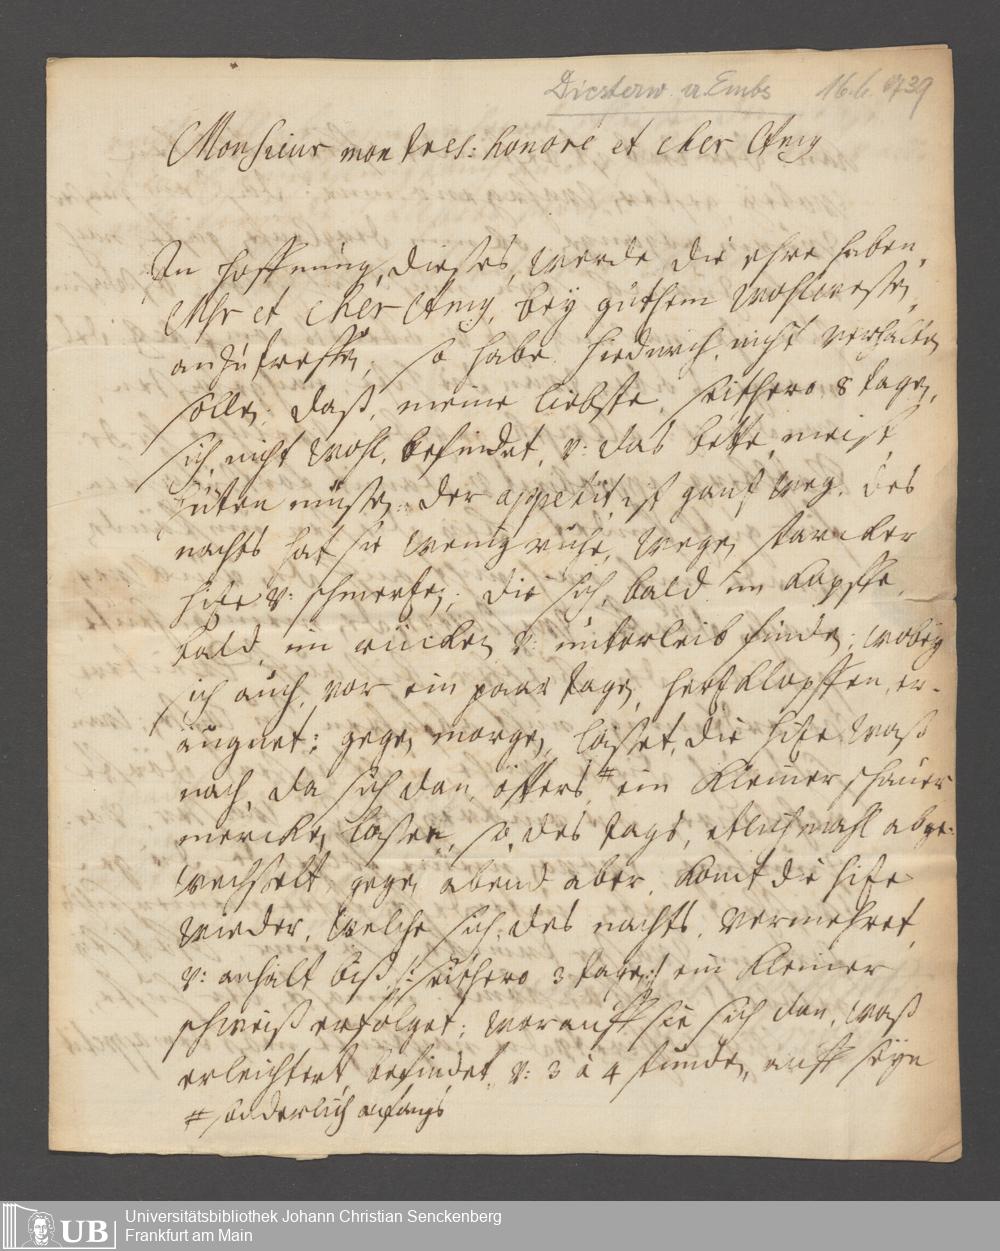 Diesterw. a. Embs 16.6. 1739
Monsieur mon tres: honoré et cher Amy
In hoffnung, dießes, werde die ehre haben,
Msr et cher Amy, bey guthem wohlweßen
anzutreffen, so habe hiedurch nicht verhalten
sollen, daß, meine liebste, seithero 8 tagen,
sich, nicht wohl, befindet, v: das bette, meist,
hüten müßen: der appetit, ist gantz weg. des
nachts hat sie wenig ruhe, wegen starcker
hitze v: schmertzen; die sich, bald im Kopffe,
bald, im rücken v: unterleib finden; wobey
sich auch, vor ein paar tagen, hertzklopffen, er-
äugnet; gegen morgen, lasset, die hitze waß
nach, da sich dan, öffters # ein kleiner schauer
mercken lassen, so, des tags, etlich mahl abge-
wechßelt, gegen abend aber, komt die hitze
wieder, welche sich, des nachts, vermehret,
v: anhält biß /: seithero 3 tagen :/ ein kleiner
schweiß erfolget; worauff sie sich dan, waß
erleichtert, befindet, v: 3 à 4 stunden, auff seyn
# sonderlich anfangs
UB Universitätsbibliothek Johann Christian Senckenberg
Frankfurt am Main